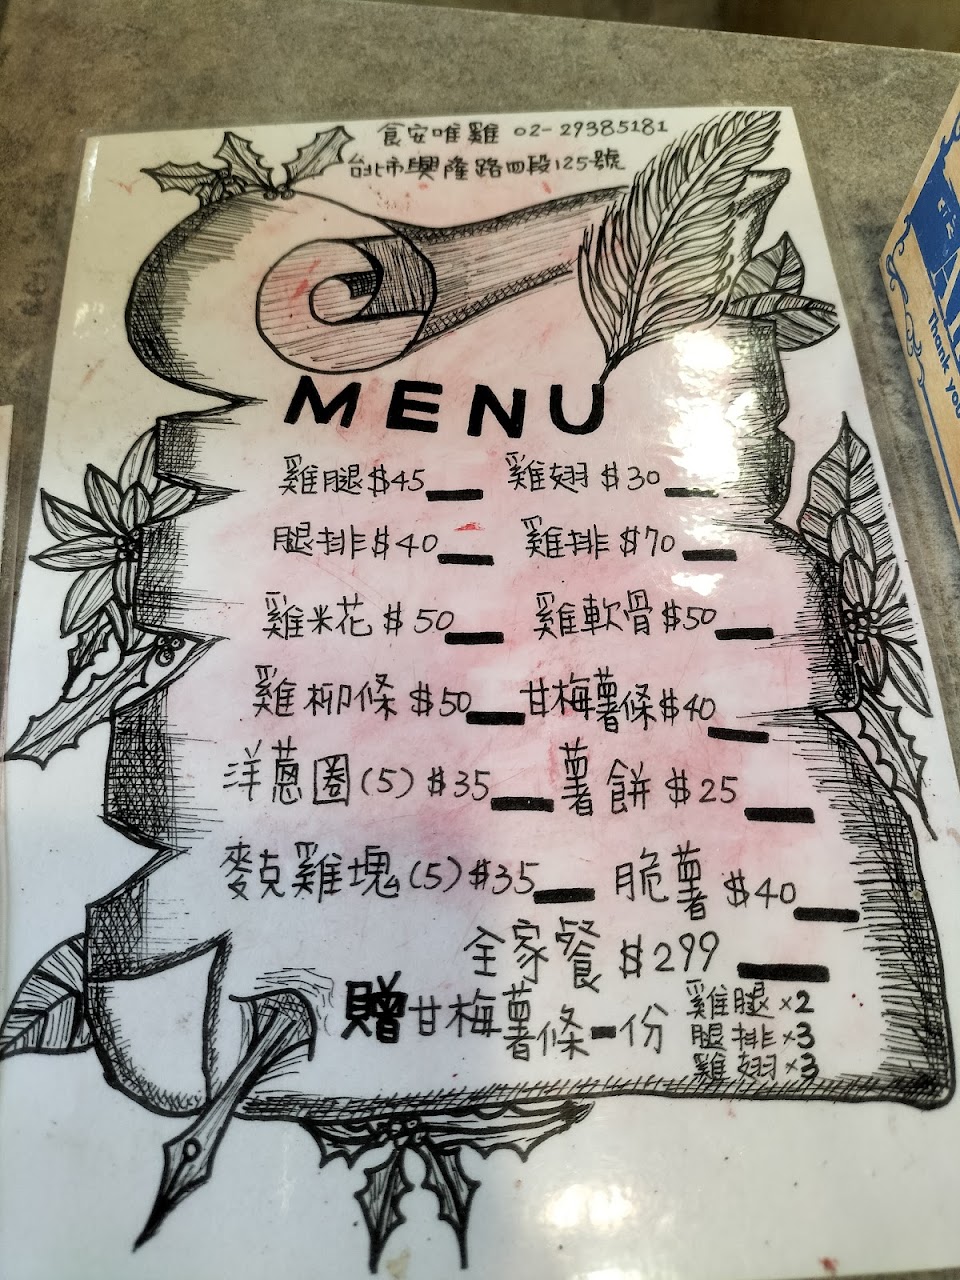 食安唯雞 02-29385181
台北市興隆路四段125號
MENU
雞腿 $45 雞翅 $30
腿排 $40 雞排 $70
雞米花 $50 雞軟骨 $50
雞柳條 $50 甘梅薯條 $40
洋蔥圈(5) $35 薯餅 $25
麥克雞塊(5) $35 脆薯 $40
全家餐 $299
贈甘梅薯條一份
雞腿×2
腿排×3
雞翅×3
Thank you